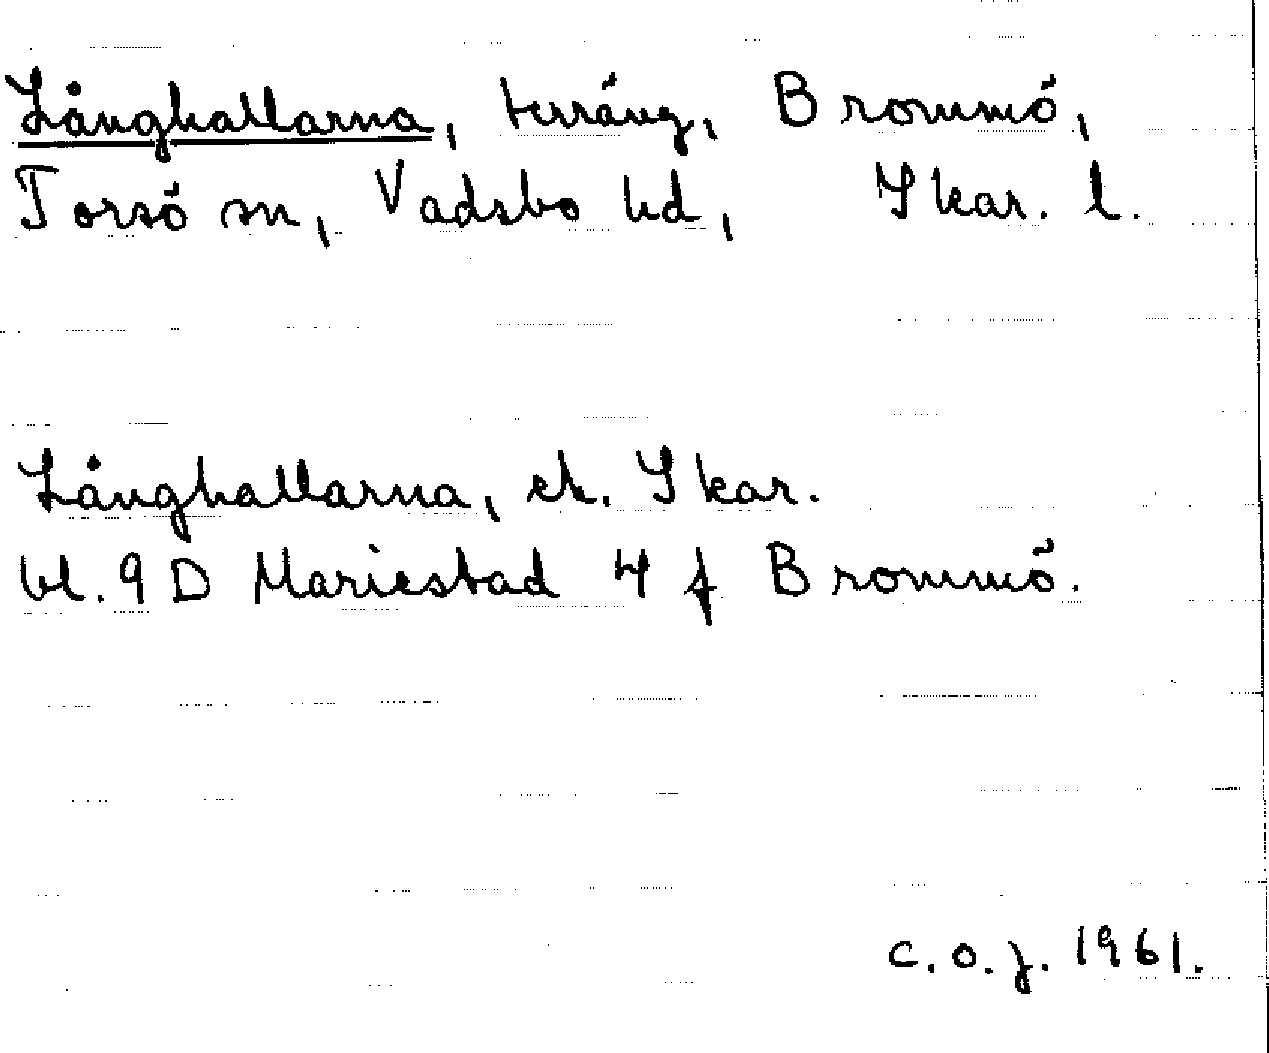 Långhallarna, terräng, Brommö,
Torsö sn, Vadsbo hd, Skar. l.
Långhallarna, ek. Skar.
bl. 9D Mariestad 4 f Brommö.
C.O.J. 1961.